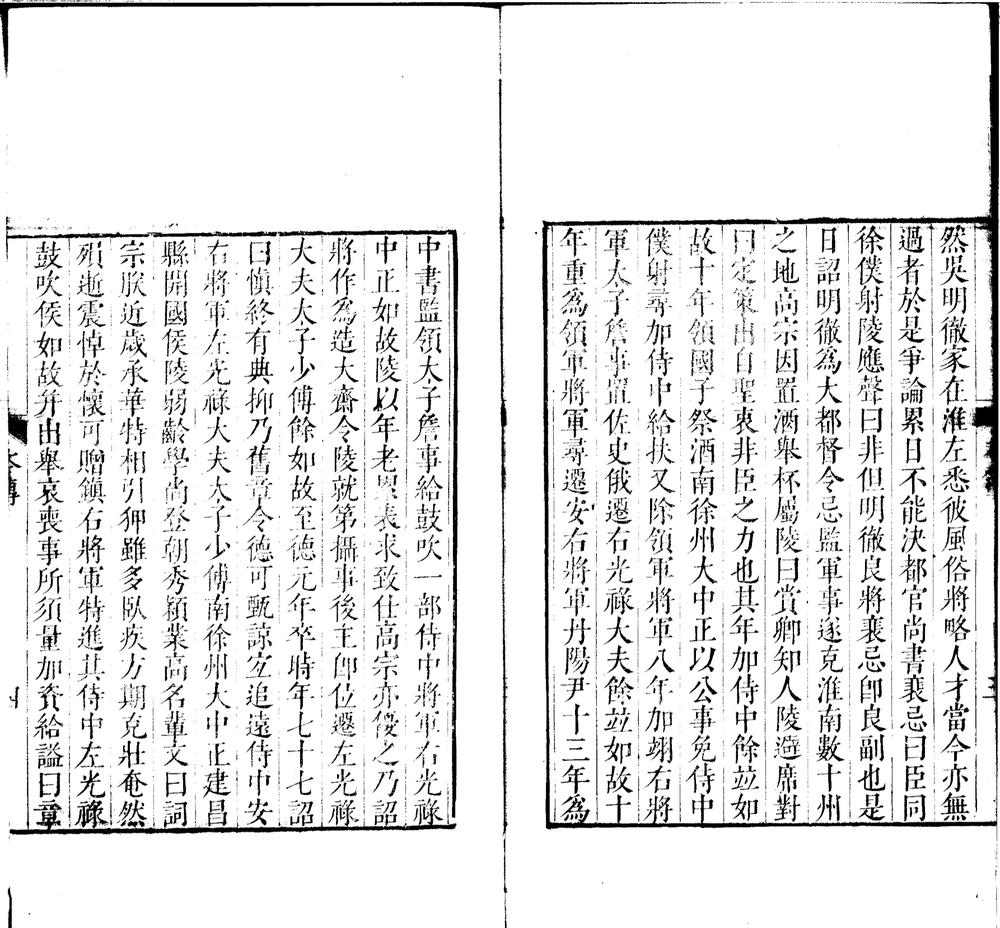 然吳明徹家在淮左悉彼風俗將略人才當今亦無
過者於是爭論累日不能決都官尚書裴忌曰臣同
徐僕射陵應聲曰非但明徹良將裴忌卽良副也是
日詔明徹爲大都督令忌監軍事遂克淮南數十州
之地高宗因置酒舉杯屬陵曰賞卿知人陵避席對
曰定策出自聖衷非臣之力也其年加侍中餘竝如
故十年領國子祭酒南徐州大中正以公事免侍中
僕射尋加侍中給扶又除領軍將軍八年加翊右將
軍太子詹事置佐史俄遷右光祿大夫餘竝如故十
年重爲領軍將軍尋遷安右將軍丹陽尹十三年爲
中書監領太子詹事給鼓吹一部侍中將軍右光祿
中正如故陵以年老累表求致仕高宗亦優之乃詔
將作爲造大齋令陵就第攝事後主卽位遷左光祿
大夫太子少傅餘如故至德元年卒時年七十七詔
曰愼終有典抑乃舊章令德可甄諒宜追遠侍中安
右將軍左光祿大夫太子少傅南徐州大中正建昌
縣開國侯陵弱齡學尚登朝秀穎業高名輩文曰詞
宗朕近歲承華特相引狎雖多臥疾方期克壯奄然
殞逝震悼於懷可贈鎭右將軍特進其侍中左光祿
鼓吹侯如故幷出舉哀喪事所須量加資給諡曰章